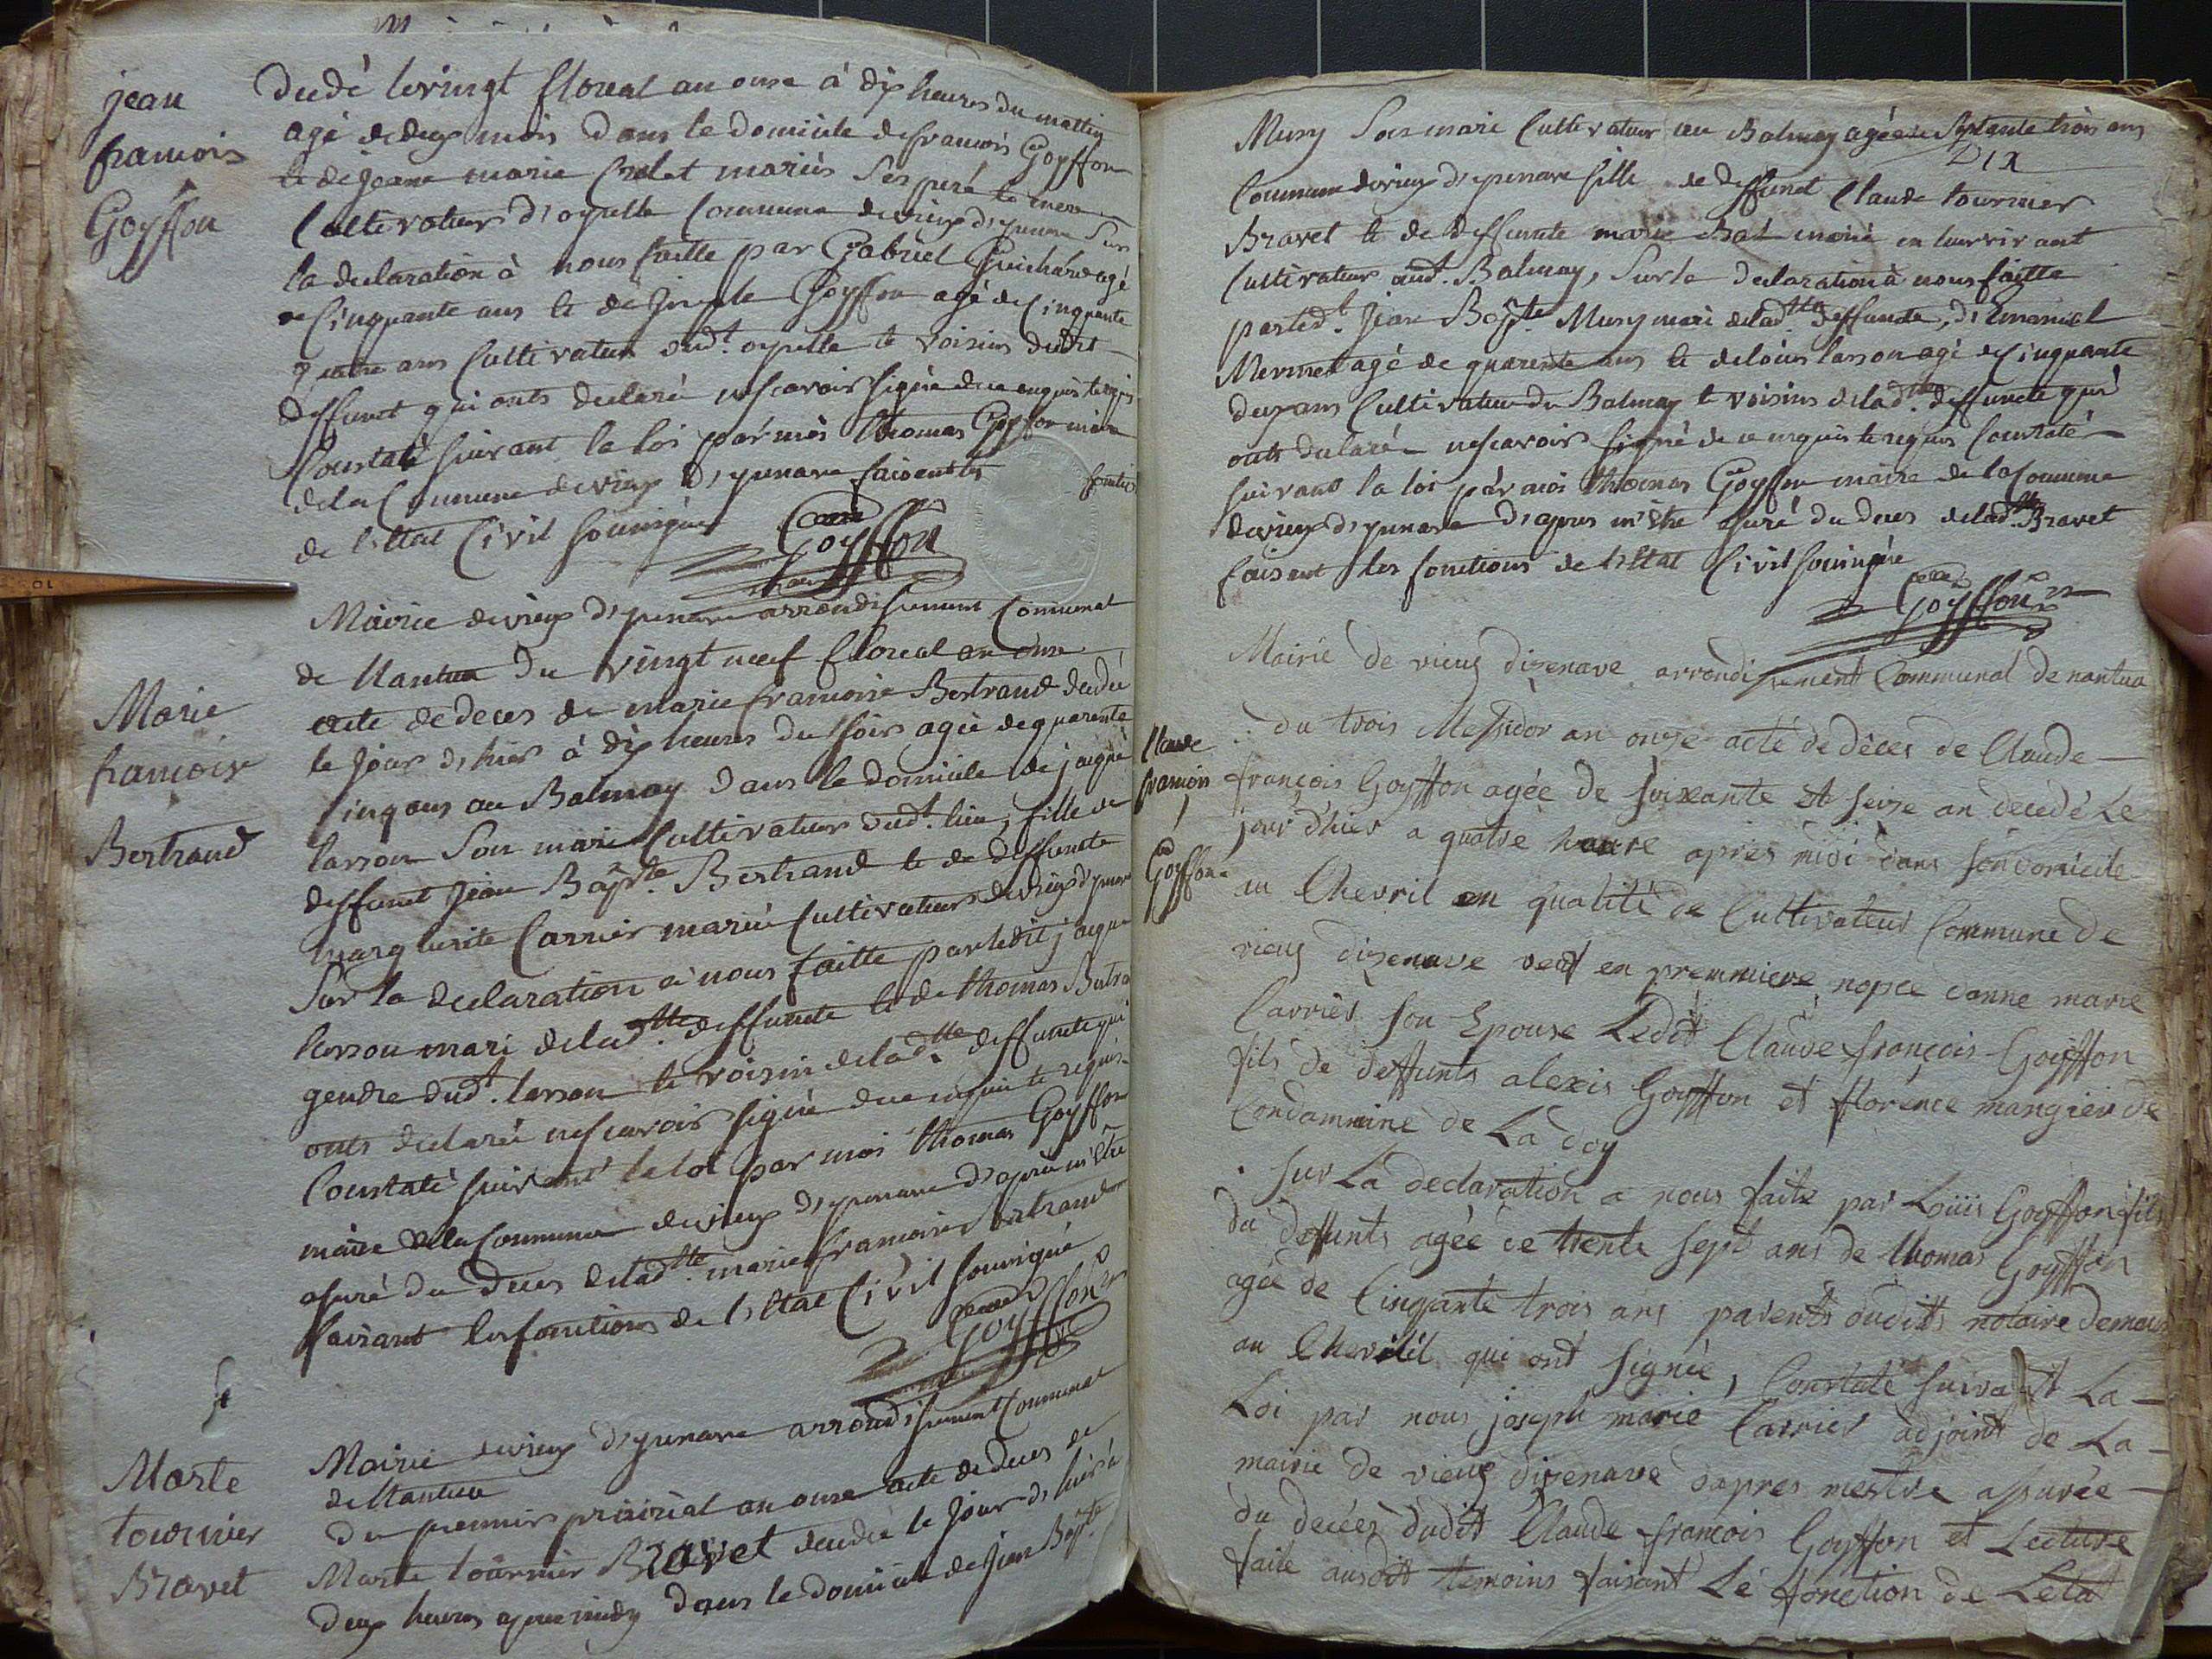 jean
francois
Goyffon
decédé le vingt floreal an onze à dix heures du mattin
agé de deux mois dans le domicile de francois Goyffon
et de jeane marie mariés ses peré et mere
Cultivateurs d'oyselle Commune de vieux d'yzenave Sur
la declaration à nous faitte par Gabriel Guichard agé
de Cinquante ans et de Joseph Goyffon agé de Cinquante
quatre ans Cultivateur dud.t oyselle et voisins dudit
deffunct qui onts declaré ne scavoir signé de ce enquis et requis
Constaté suivant la loi par moi thomas Goyffon maire
de la Commune de vieux d'yzenave faisant les fontions
de l'Etat Civil soussigné
Goyffon
maire
Mairie de vieux d'yzenave arrondissement Communal
de Nantua Du vingt neuf floreal an onze
Marie
francoise
Bertrand
acte de deces de marie francoise Bertrand decedée
le jour d'hier à dix heures du soir agée de quarente
Cinq ans au Balmay dans le domicile de jacque
larson Son mari Cultivateur dud.t lieu, fille de
deffunct Jean Bapt.te Bertrand et de deffuncte
marguerite Carrier mariés Cultivateurs de vieux d'yzenave
Sur la declaration à nous faitte par ledit jacque
larson mari de lad.tte deffuncte et de thomas Bertrand
gendre dud.t larson et voisin de lad.tte deffuncte qui
onts declaré ne scavoir signé de ce enquis et requis
Constaté suivant la loi par moi thomas Goyffon
maire de la Commune de vieux d'yzenave d'après m'être
assuré du deces de lad.tte marie francoise Bertrand
faisant les fonctions de l'Etat Civil soussigné
Goyffon
Mairie de vieux d'yzenave arrondissement Communal
de Nantua
Marte
tournier
Bravet
Du premier prairial an onze acte de deces de
Marte tournier Bravet decedée le jour d'hier à
deux heures apres midy dans le domicile de jean Bapt.te
Musy Son mari Cultivateur au Balmay agée de Septante trois ans
DIX
Commune de vieux d'yzenave fille de deffunct Claude tournier
Bravet et de deffuncte marie Bal marié en leur vivant
Cultivateurs aud.t Balmay, Sur la declaration à nous faitte
par led.t Jean Bapt.te Musy mari de lad.tte deffuncte, d'Emanuel
Mermet agé de quarente ans et de loüis larson agé de Cinquante
deux ans Cultivateur du Balmay et voisins de lad.tte deffuncte qui
onts declaré ne scavoir signé de ce enquis et requis Constaté
suivant la loi par moi thomas Goyffon maire de la Commune
de vieux d'yzenave d'apres m'être assuré du deces de lad.tte Bravet
faisant les fonctions de l'Etat Civil soussigné
Goyffon
Mairie de vieux dizenave arrondissement Communal de nantua
Claude
francois
Goyffon
du trois Messidor an onze acté de déces de Claude
françois Goyffon agée de soixante et seize an decedé Le
jour d'hier a quatre heure apres midi dans son domicile
au Chevril en qualité de Cultivateur Commune de
vieux dizenave veuf en premmiere nopce danne marie
Carrier son Epouse Ledit Claude françois Goyffon
fils de deffunts alexis Goyffon et florence mangier de
Condammine de La doy
Sur La declaration a nous faite par Loüis Goyffon fils
du deffunts agée de trente sept ans de thomas Goyffon
agée de Cinqante trois ans parents dudits notaire demeur
au Chevril qui ont signée, Constaté suivant La
Loi par nous joseph marie Carrier adjoint de La
mairie de vieux dizenave dapres mestre assurée
du decées dudit Claude francois Goyffon et Lecture
faite ausdit temoins faisant Le fonction de Letat